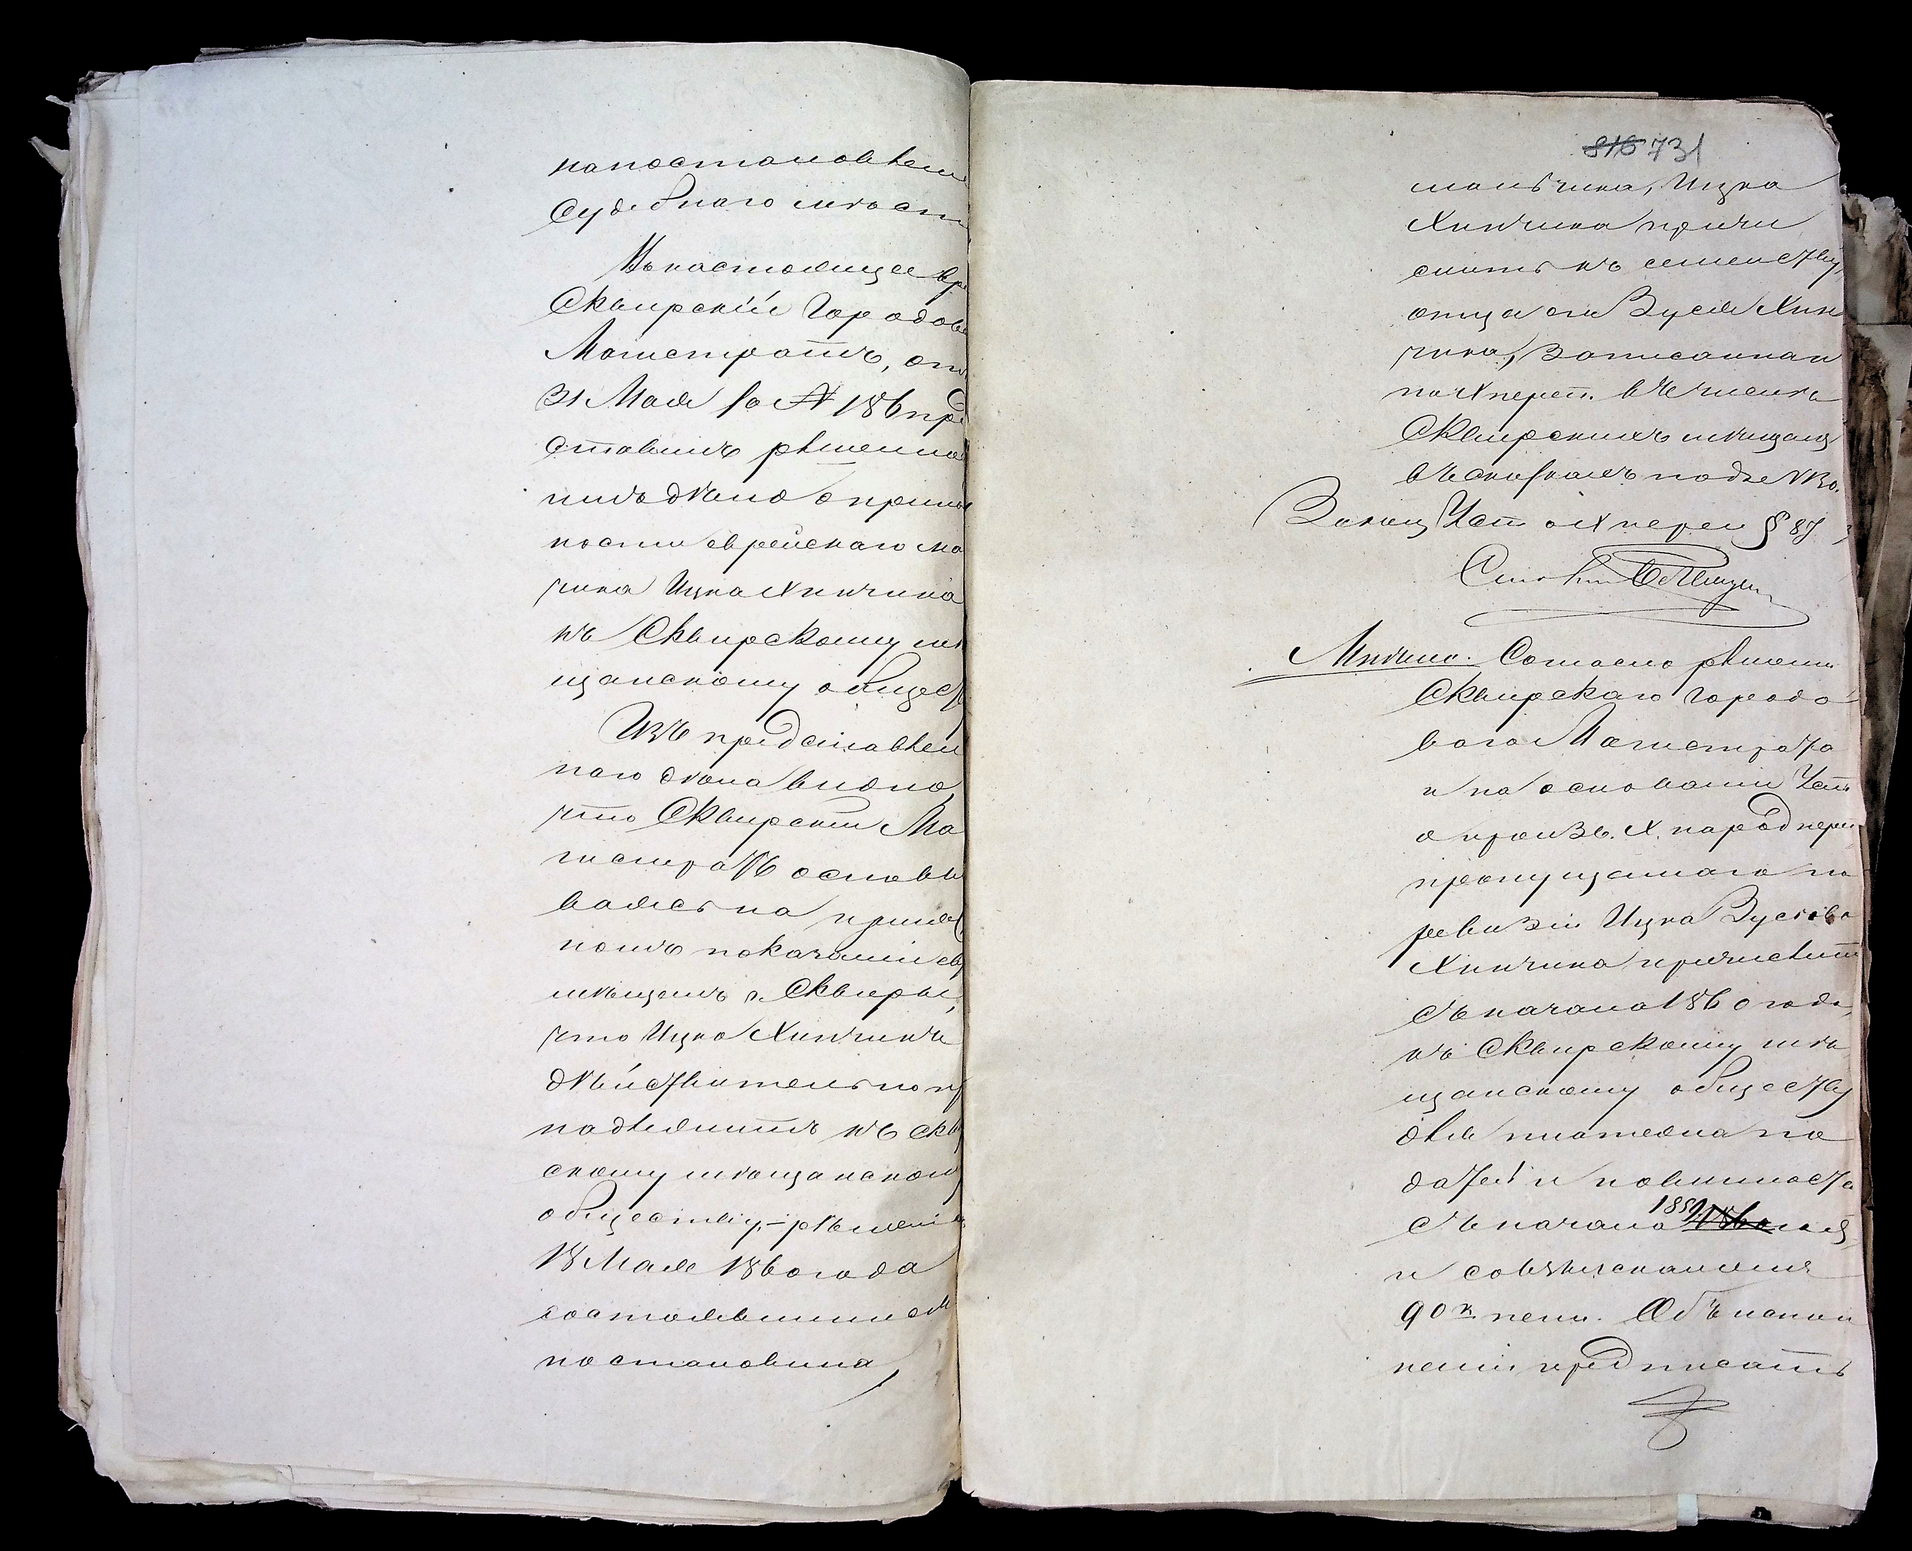 на постановлен
Судебнаго мѣста
Въ настоящее вре
Сквирскій Городов
Магистратъ, отъ
31 Мая за № 186 пре
ставилъ рѣшенно
имъ дѣло о принад
ности еврейскаго ма
чика Ицка Хинчина
къ Сквирскому мѣ
щанскому обществ
Изъ представлен
наго дѣла видно,
что Сквирскій Ма
гистратъ основы
ваясь на
номъ показаніи ев
мѣщанъ г. Сквиры,
что Ицко Хинчинъ
дѣйствительно пр
надлежитъ къ Скв
скому мѣщанском
обществу, – рѣшеніе
18 Мая 1860 года
состоявшимся
постановила,
816 731
мальчика, Ицка
Хинчина причи
слить къ семейству
отца его Зуся Хин
чина, записаннаго
по X переп. въ числѣ
Сквирскихъ мѣщанъ
въ сказкахъ подъ №
Законъ Уст о X переп § 87
Мнѣніе. Согласно рѣшенію
Сквирскаго Городо
ваго Магистрата
и на основаніи Уст
о произв. X. народ переп
пропущеннаго по
ревизіи Ицка Зусева
Хинчина причислить
съ начала 1860 года,
къ Сквирскому мѣ
щанскому обществу
для платежа по
датей и повинносте
съ начала 1859
и со взысканіемъ
90 к пени. Объ испол
неніи предписать